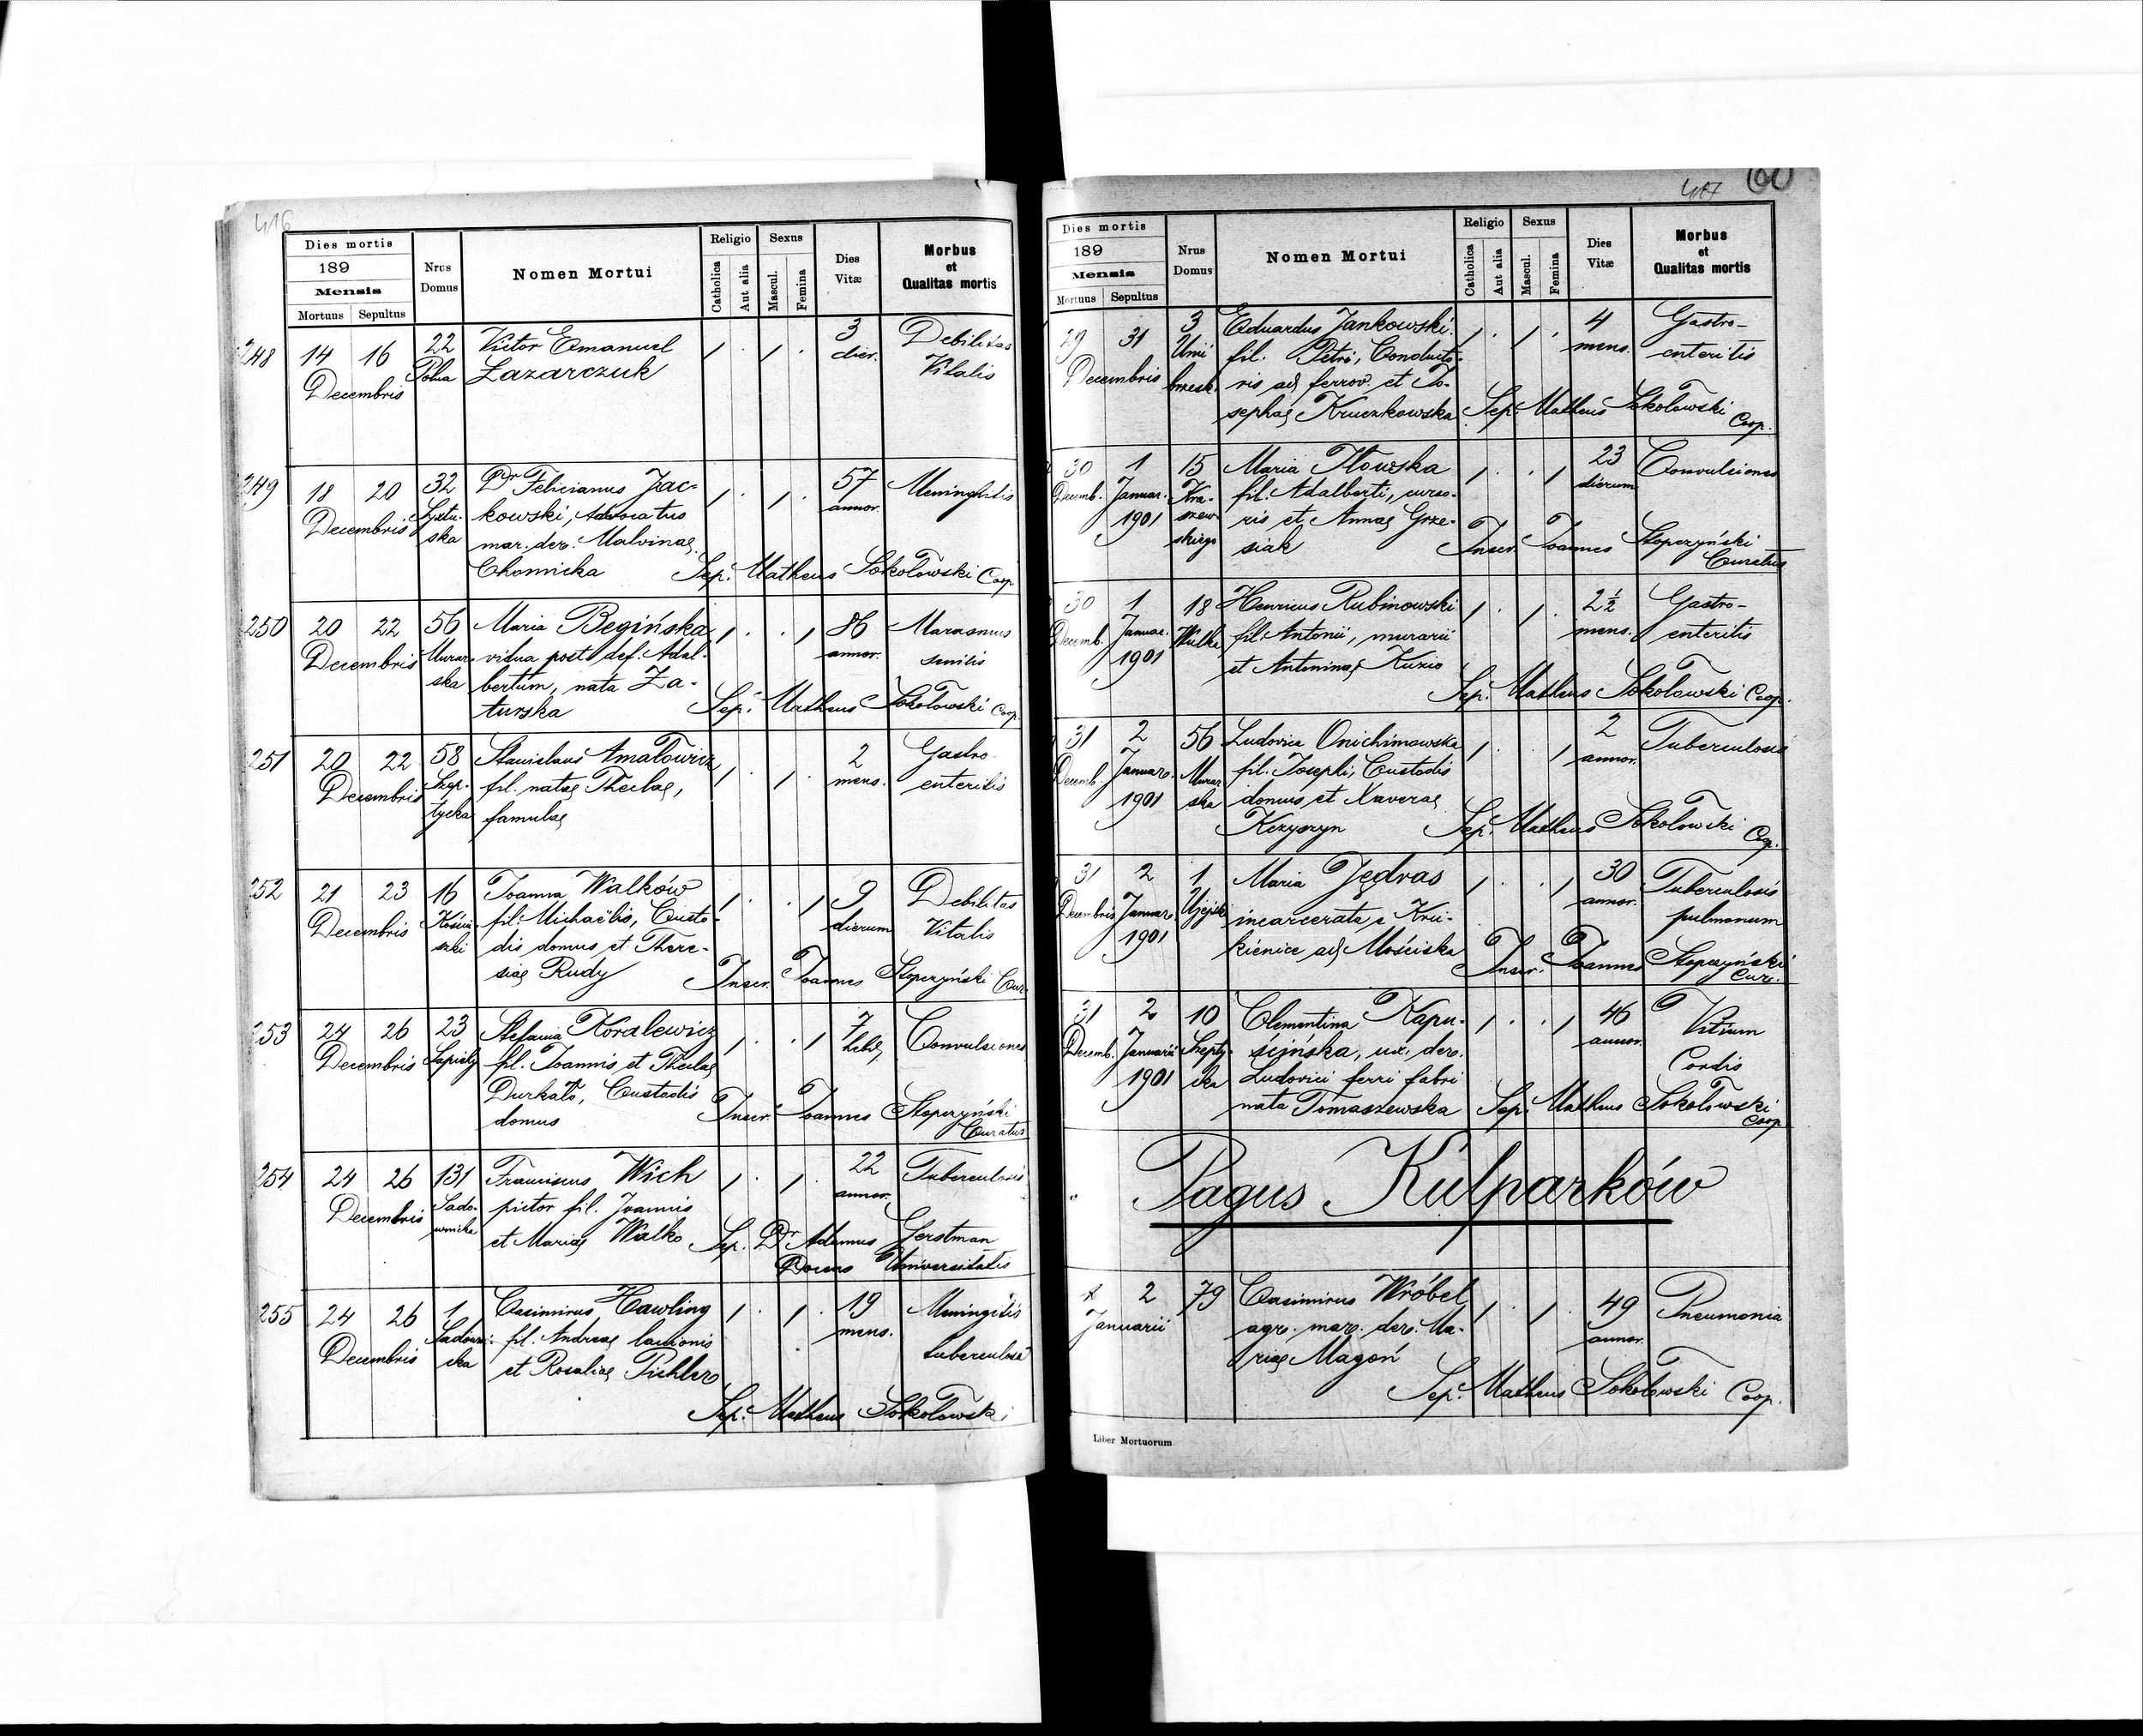 416
Dies mortis
189
Mensis
Mortuus Sepultus
Nrus Domus
Nomen Mortui
Religio
Catholica
Aut alia
Sexus
Mascul.
Femina
Dies Vitæ
Morbus et Qualitas mortis
248 14 16 22 Victor Emanuel 3 Debilitas
Decembris Polna Łazarczuk dier. Vitalis
249 18 20 32 Dr Felicianus Jac- 57 Meninghitis
Decembris Syxtu- kowski, Advocatus annor.
ska mar. der. Malvinae
Chomicka Sep. Matheus Sokołowski Coop
250 20 22 56 Maria Begińska 86 Marasmus
Decembris Murar- vidua post def. Adal- annor. senilis
ska bertum, nata Za-
turska Sep. Matheus Sokołowski Coop.
251 20 22 58 Stanislaus Amałowicz 2 Gastro-
Decembris Szep- fil. natae Theclae, mens. enteritis
tycka famulae
252 21 23 16 Joanna Walków 9 Debilitas
Decembris fil. Michaëlis, Custo- dierum Vitalis
dis domus et There-
siae Rudy Inscr. Joannes Stopczyński Cur.
253 24 26 23 Stefania Koralewicz 7 Convulsiones
Decembris Sapiehy fil. Joannis et Theclae hebd,
Durkało, Custodis Inscr. Joannes Stopczyński
domus Curatus
254 24 26 131 Franciscus Wich 22 Tuberculosis
Decembris Sado- pictor fil. Joannis annor.
wnicka et Mariae Walko Sep. Dr Adamus Gerstman
Docens Universitatis
255 24 26 1 Casimirus Hawling 19 Meningitis
Decembris fil. Andreae lanionis mens. tuberculosa
cka et Rosaliae Pichler
Sep. Matheus Sokołowski
417
Dies mortis
189
Mensis
Mortuus Sepultus
Nrus Domus
Nomen Mortui
Religio
Catholica
Aut alia
Sexus
Mascul.
Femina
Dies Vitæ
Morbus et Qualitas mortis
29 31 3 Eduardus Jankowski 4 Gastro-
Decembris Unii fil. Petri, Conducto- mens. enteritis
brzesk. ris ad ferrov. et Jo-
sephae Kruczkowska Sep. Matheus Sokołowski Coop.
30 1 15 Maria Iłowska 23 Convulsiones
Decemb. Januar. Kra- fil. Adalberti, curso- dierum
1901 szew- ris et Annae Grze-
skiego siak Inscr. Joannes Stopczyński
Curatus
30 1 18 Henricus Rubinowski 2½ Gastro-
Decemb. Januar. Wulka fil. Antonii, murarii mens. enteritis
1901 et Antoninae Kuzio
Sep. Matheus Sokołowski Coop.
31 2 56 Ludovica Onichimowska 2 Tuberculosis
Decemb. Januar. Murar fil. Josephi, Custodis annor.
1901 ska domus et Xaverae
Krzyszyn Sep. Matheus Sokołowski Coop.
31 2 1 Maria Jędras 30 Tuberculosis
Decembris Januar. Ujejski incarcerata e Kru- annor. pulmonum
1901 kienice ad Mościska
Inscr. Joannes Stopczyński
Cur.
31 2 10 Clementina Kapu- 46 Vitium
Decemb. Januarii Szepty- ścińska, ux. der. annor. Cordis
1901 cka Ludovici ferri fabri
nata Tomaszewska Sep. Matheus Sokołowski
Coop
Pagus Kulparków
2 79 Casimirus Wróbel 49 Pneumonia
Januarii agr. mar. der. Ma- annor.
riae Magoń
Sep. Matheus Sokołowski Coop.
Liber Mortuorum